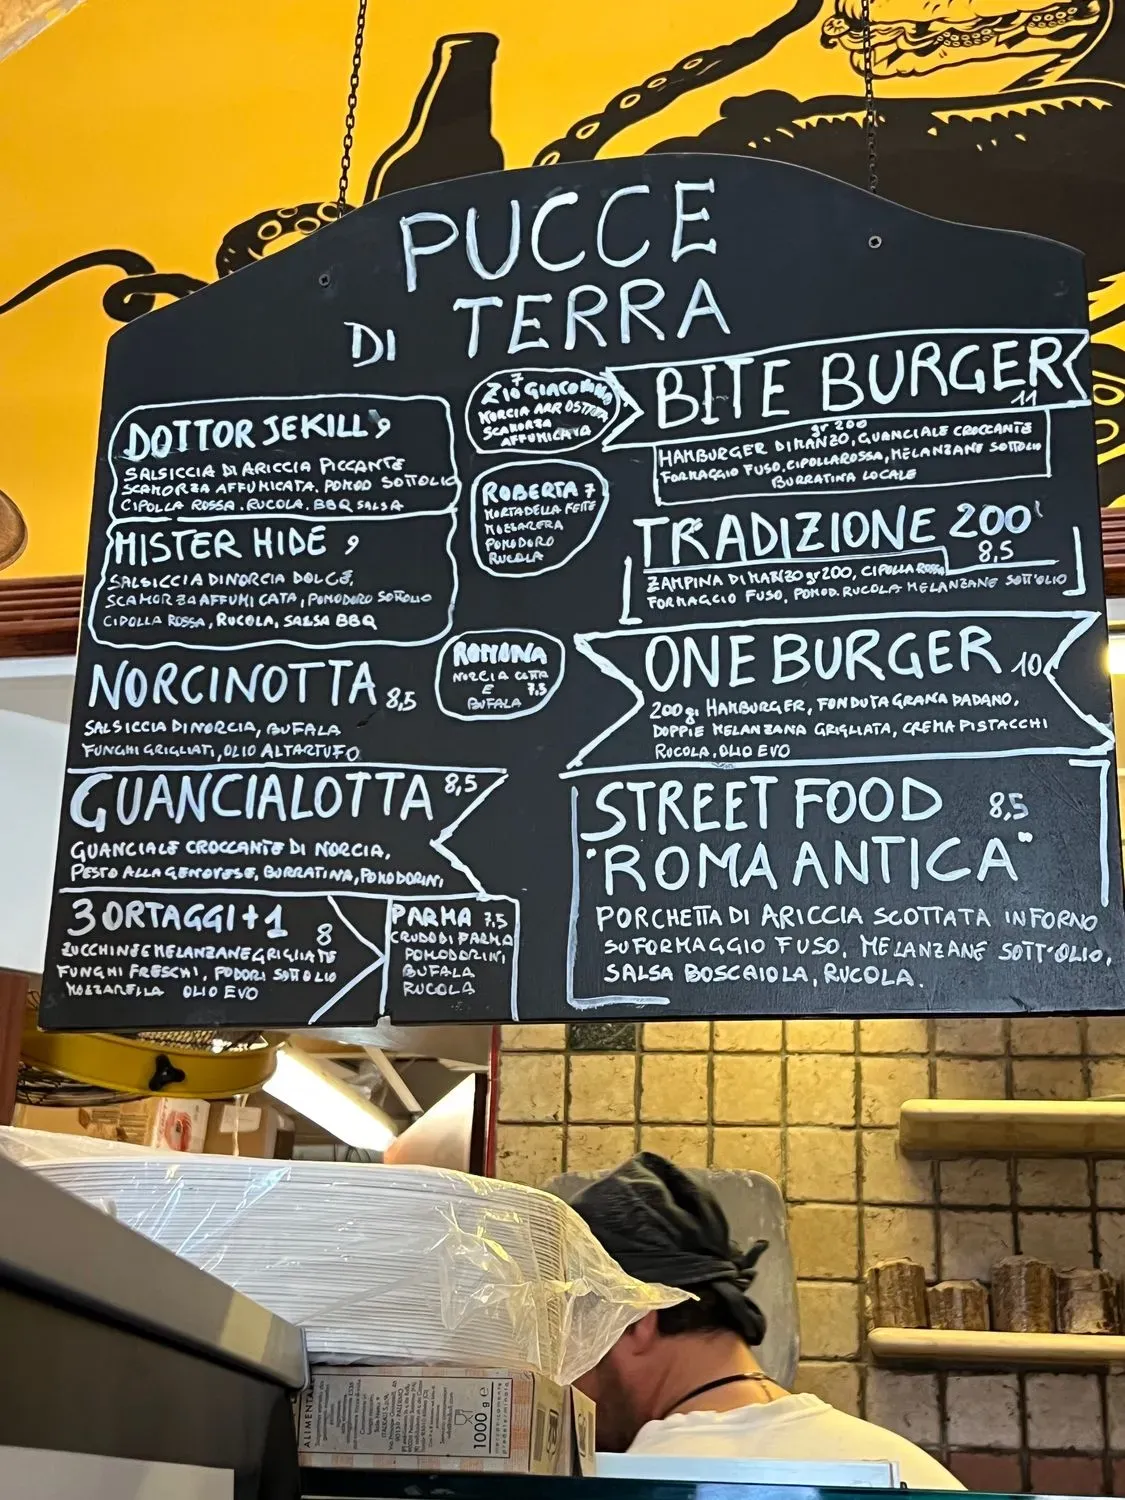 PUCCE
DI TERRA
DOTTOR JEKILL 9
SALSICCIA DI ARICCIA PICCANTE
SCAMORZA AFFUMICATA. POMOD SOTTOLIO
CIPOLLA ROSSA. RUCOLA. BBQ SALSA
MISTER HIDE 9
SALSICCIA DI NORCIA DOLCE,
SCAMORZA AFFUMICATA, POMODORO SOTTOLIO
CIPOLLA ROSSA, RUCOLA, SALSA BBQ
NORCINOTTA 8,5
SALSICCIA DI NORCIA, BUFALA
FUNGHI GRIGLIATI, OLIO AL TARTUFO
GUANCIALOTTA 8,5
GUANCIALE CROCCANTE DI NORCIA,
PESTO ALLA GENOVESE, BURRATINA, POMODORINI
3 ORTAGGI + 1 8
ZUCCHINE E MELANZANE GRIGLIATE
FUNGHI FRESCHI, PODORI SOTTOLIO
MOZZARELLA OLIO EVO
7
ZIO GIACOMINO
NORCIA ARROSTITA
SCAMORZA
AFFUMICATA
ROBERTA 7
MORTADELLA FETTE
MOZZARELLA
POMODORO
RUCOLA
ROMONA
NORCIA COTTA
E 7.5
BUFALA
PARMA 7.5
CRUDO DI PARMA
POMODORINI
BUFALA
RUCOLA
BITE BURGER
11
gr 200
HAMBURGER DI MANZO, GUANCIALE CROCCANTE
FORMAGGIO FUSO. CIPOLLA ROSSA, MELANZANE SOTTOLIO
BURRATINA LOCALE
TRADIZIONE 200
8,5
ZAMPINA DI MANZO gr 200, CIPOLLA ROSSA
FORMAGGIO FUSO, POMOD. RUCOLA MELANZANE SOTT'OLIO
ONE BURGER 10
200 gr HAMBURGER, FONDUTA GRANA PADANO,
DOPPIE MELANZANA GRIGLIATA, CREMA PISTACCHI
RUCOLA. OLIO EVO
STREET FOOD 8,5
"ROMA ANTICA"
PORCHETTA DI ARICCIA SCOTTATA IN FORNO
SU FORMAGGIO FUSO, MELANZANE SOTT'OLIO,
SALSA BOSCAIOLA, RUCOLA.
1000 g e